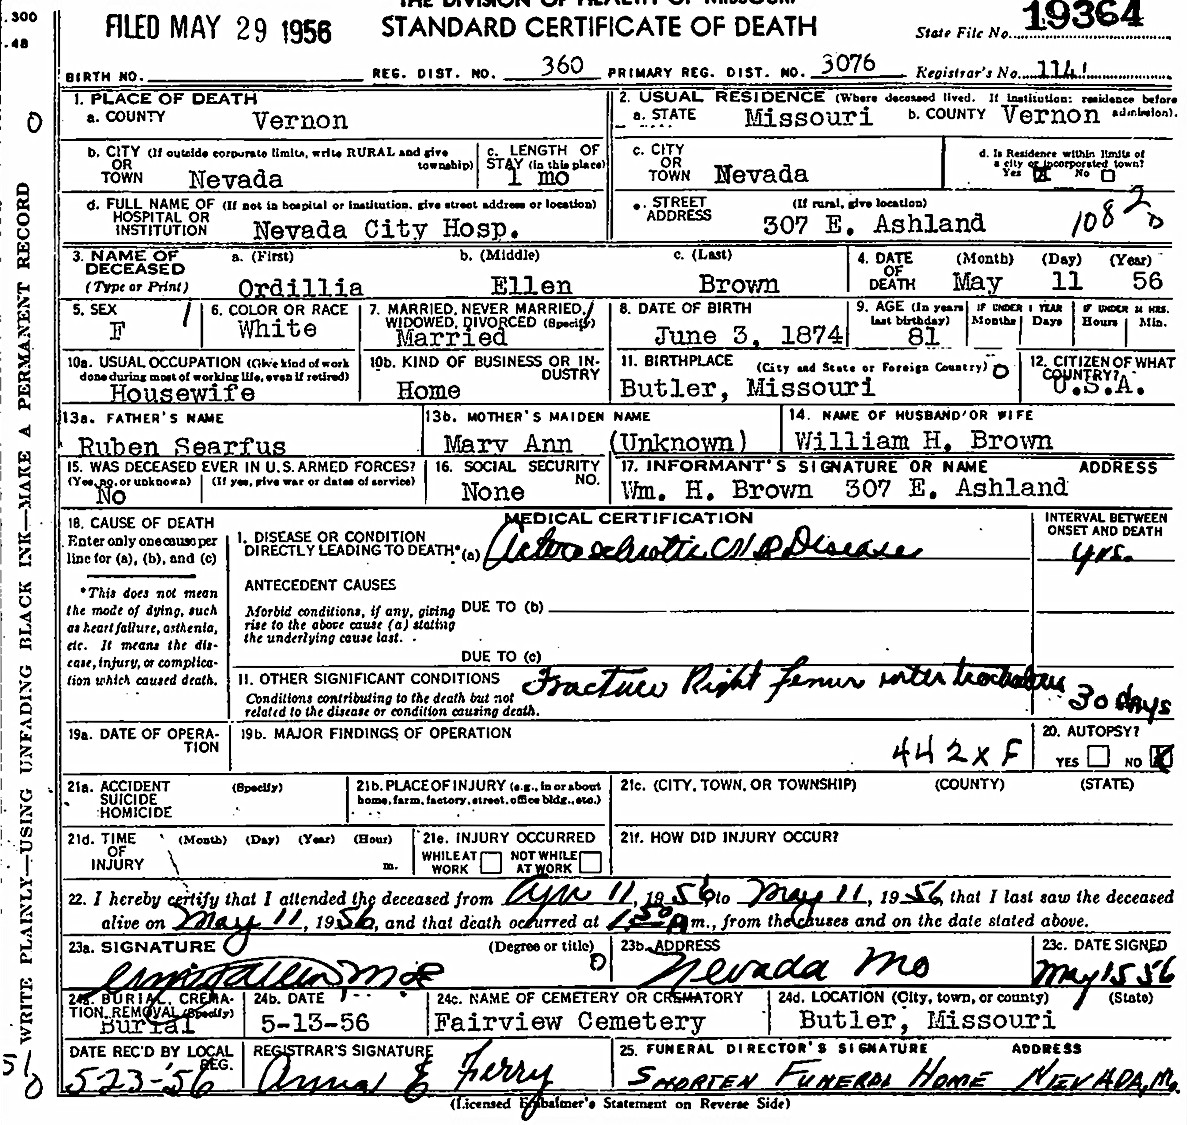 THE DIVISION OF HEALTH OF MISSOURI
.300
.48
FILED MAY 29 1956
STANDARD CERTIFICATE OF DEATH
State File No. 19364
BIRTH NO.
REG. DIST. NO. 360
PRIMARY REG. DIST. NO. 3076
Registrar's No. 114
WRITE PLAINLY—USING UNFADING BLACK INK—MAKE A PERMANENT RECORD
0
1. PLACE OF DEATH
a. COUNTY Vernon
2. USUAL RESIDENCE (Where deceased lived. If institution: residence before admission).
a. STATE Missouri b. COUNTY Vernon
b. CITY (If outside corporate limits, write RURAL and give township)
OR
TOWN Nevada
c. LENGTH OF
STAY (in this place)
1 mo
c. CITY
OR
TOWN Nevada
d. Is Residence within limits of
a city or incorporated town?
Yes No
d. FULL NAME OF (If not in hospital or institution, give street address or location)
HOSPITAL OR
INSTITUTION Nevada City Hosp.
e. STREET (If rural, give location)
ADDRESS 307 E. Ashland
1082
0
3. NAME OF
DECEASED
(Type or Print)
a. (First) Ordillia
b. (Middle) Ellen
c. (Last) Brown
4. DATE
OF
DEATH
(Month) (Day) (Year)
May 11 56
5. SEX
F
6. COLOR OR RACE
White
7. MARRIED, NEVER MARRIED,
WIDOWED, DIVORCED (Specify)
Married
8. DATE OF BIRTH
June 3, 1874
9. AGE (In years
last birthday)
81
IF UNDER 1 YEAR
Months Days
IF UNDER 24 HRS.
Hours Min.
10a. USUAL OCCUPATION (Give kind of work
done during most of working life, even if retired)
Housewife
10b. KIND OF BUSINESS OR INDUSTRY
Home
11. BIRTHPLACE (City and State or Foreign Country)
Butler, Missouri
12. CITIZEN OF WHAT
COUNTRY?
U.S.A.
13a. FATHER'S NAME
Ruben Searfus
13b. MOTHER'S MAIDEN NAME
Mary Ann (Unknown)
14. NAME OF HUSBAND OR WIFE
William H. Brown
15. WAS DECEASED EVER IN U.S. ARMED FORCES?
(Yes, no, or unknown) (If yes, give war or dates of service)
No
16. SOCIAL SECURITY
NO.
None
17. INFORMANT'S SIGNATURE OR NAME ADDRESS
Wm. H. Brown 307 E. Ashland
18. CAUSE OF DEATH
Enter only one cause per
line for (a), (b), and (c)
*This does not mean
the mode of dying, such
as heart failure, asthenia,
etc. It means the dis-
ease, injury, or complica-
tion which caused death.
MEDICAL CERTIFICATION
INTERVAL BETWEEN
ONSET AND DEATH
I. DISEASE OR CONDITION
DIRECTLY LEADING TO DEATH* (a) Disease
yrs.
ANTECEDENT CAUSES
Morbid conditions, if any, giving
rise to the above cause (a) stating
the underlying cause last.
DUE TO (b)
DUE TO (c)
II. OTHER SIGNIFICANT CONDITIONS
Conditions contributing to the death but not
related to the disease or condition causing death.
Fracture Right femur inter
30 days
19a. DATE OF OPERA-
TION
19b. MAJOR FINDINGS OF OPERATION
442XF
20. AUTOPSY?
YES NO
21a. ACCIDENT (Specify)
SUICIDE
HOMICIDE
21b. PLACE OF INJURY (e.g., in or about
home, farm, factory, street, office bldg., etc.)
21c. (CITY, TOWN, OR TOWNSHIP) (COUNTY) (STATE)
21d. TIME (Month) (Day) (Year) (Hour)
OF
INJURY m.
21e. INJURY OCCURRED
WHILE AT
WORK
NOT WHILE
AT WORK
21f. HOW DID INJURY OCCUR?
22. I hereby certify that I attended the deceased from Apr 11, 1956 to May 11, 1956, that I last saw the deceased
alive on May 11, 1956, and that death occurred at 1:50 A m., from the causes and on the date stated above.
23a. SIGNATURE (Degree or title)
23b. ADDRESS
Nevada Mo
23c. DATE SIGNED
May 15 56
24a. BURIAL, CREMA-
TION, REMOVAL (Specify)
Burial
24b. DATE
5-13-56
24c. NAME OF CEMETERY OR CREMATORY
Fairview Cemetery
24d. LOCATION (City, town, or county) (State)
Butler, Missouri
DATE REC'D BY LOCAL
REG.
5-23-56
REGISTRAR'S SIGNATURE
Anna E Ferry
25. FUNERAL DIRECTOR'S SIGNATURE ADDRESS
SHORTEN FUNERAL HOME NEVADA, Mo.
51
0
(Licensed Embalmer's Statement on Reverse Side)